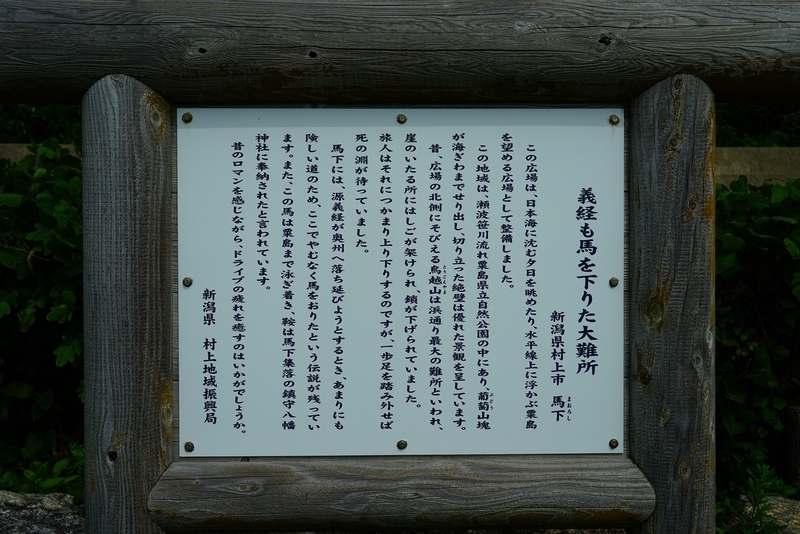 義経も馬を下りた大難所
新潟県村上市 馬下
まおろし
この広場は、日本海に沈む夕日を眺めたり、水平線上に浮かぶ粟島
を望める広場として整備しました。
この地域は、瀬波笹川流れ粟島県立自然公園の中にあり、葡萄山塊
ぶどう
が海ぎわまでせり出し、切り立った絶壁は優れた景観を呈しています。
昔、広場の北側にそびえる鳥越山は浜通り最大の難所といわれ、
崖のいたる所にはしごが架けられ、鎖が下げられていました。
旅人はそれにつかまり上り下りするのですが、一歩足を踏み外せば
死の淵が待っていました。
馬下には、源義経が奥州へ落ち延びようとするとき、あまりにも
険しい道のため、ここでやむなく馬をおりたという伝説が残ってい
ます。また、この馬は粟島まで泳ぎ着き、鞍は馬下集落の鎮守八幡
神社に奉納されたと言われています。
昔のロマンを感じながら、ドライブの疲れを癒すのはいかがでしょうか。
新潟県 村上地域振興局